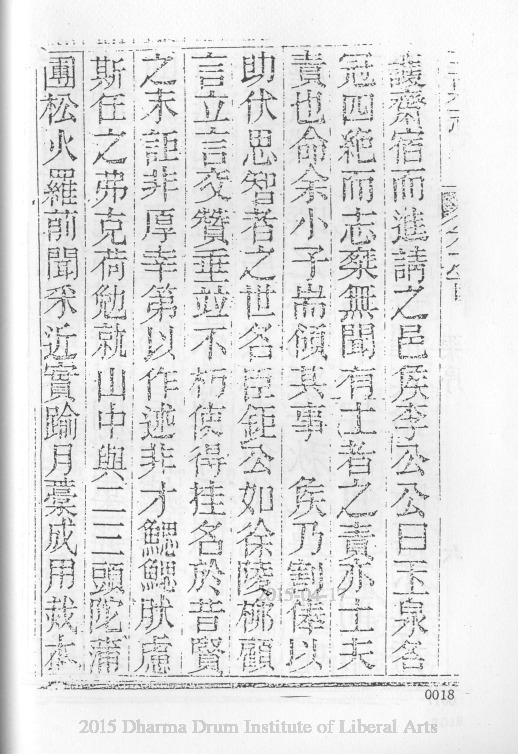 護齋宿而進請之邑侯李公公曰玉泉名
冠四絶而志椉無聞有土者之責亦士夫
責也命余小子耑領其事 侯乃割俸以
助伏思智者之世名臣鉅公如徐陵柳顧
言立言交贊垂竝不朽使得挂名於昔賢
之末詎非厚幸第以作述非才鰓鰓肰慮
斯任之弗克荷勉就山中與二三頭陀蒲
團松火羅前聞釆近實踰月藁成用栽本
0018
2015 Dharma Drum Institute of Liberal Arts